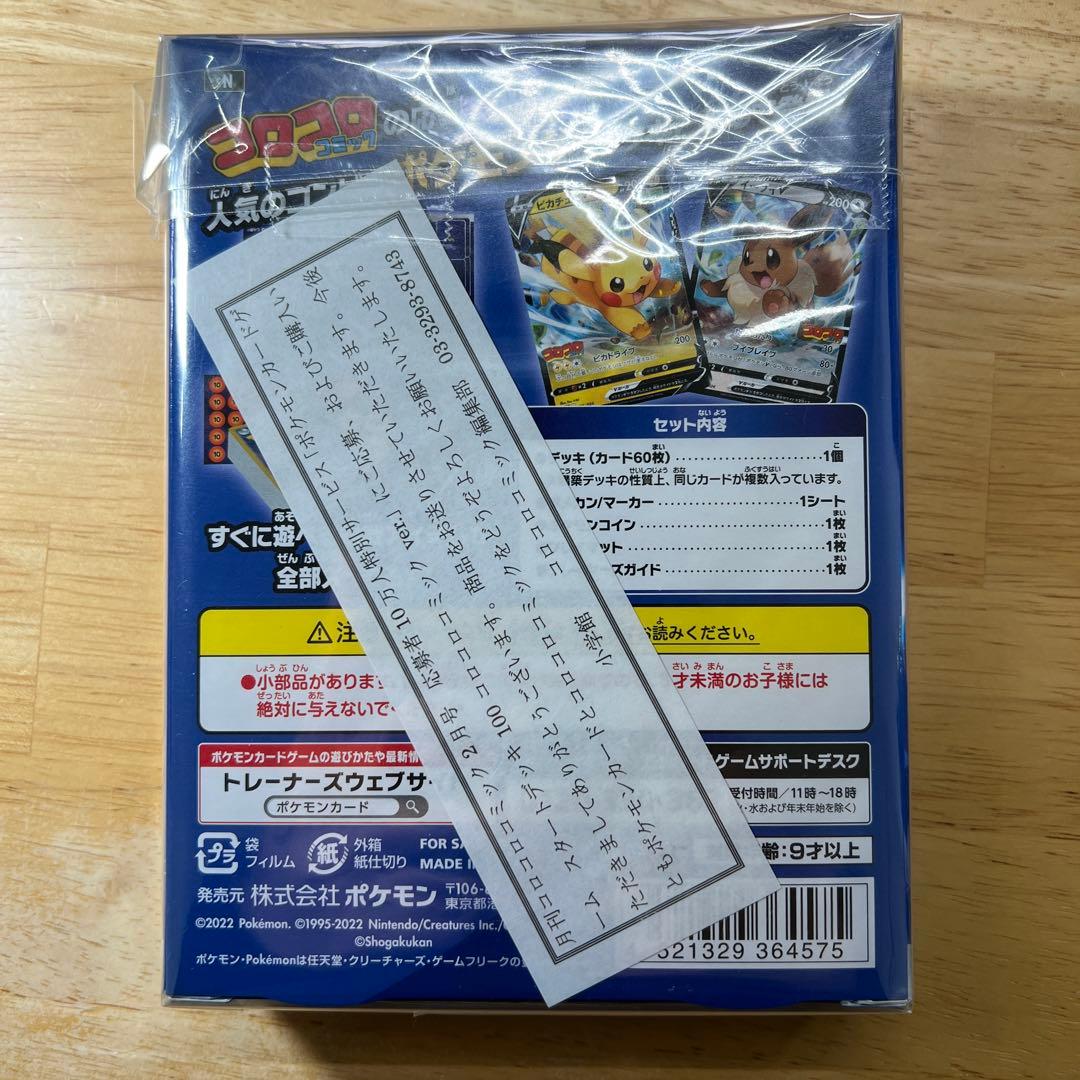 コロコロ
コミック
にんき
人気のコン
ピカチュ
200
ピカドライブ
200
コロコロ
ブイブレイブ
30
80-
コロコロ
10
10
10
10
10
すぐに遊べ
あそ
ぜんぶ
全部
ないよう
セット内容
デッキ(カード60枚) 1個
構築デッキの性質上、同じカードが複数入っています。
カン/マーカー 1シート
ンコイン 1枚
ット 1枚
ズガイド 1枚
月刊コロコロコミック2月号 応募者10万人特別サービス「ポケモンカードゲ
ーム スタートデッキ100 コロコロコミックver.」にご応募、およびご購入い
ただきましてありがとうございます。商品をお送りさせていただきます。今後
ともポケモンカードとコロコロコミックをどうぞよろしくお願いいたします。
小学館 コロコロコミック編集部 03-3293-8743
⚠注
お読みください。
●小部品があります
才未満のお子様には
絶対に与えないで
ポケモンカードゲームの遊びかたや最新情
トレーナーズウェブサ
ポケモンカード
ゲームサポートデスク
受付時間/11時〜18時
水および年末年始を除く)
プラ
袋
フィルム
紙
外箱
紙仕切り
FOR SA
MADE I
齢:9才以上
発売元 株式会社ポケモン
〒106-6
東京都港
©2022 Pokémon. ©1995-2022 Nintendo/Creatures Inc./
©Shogakukan
ポケモン・Pokémonは任天堂・クリーチャーズ・ゲームフリークの
521329 364575